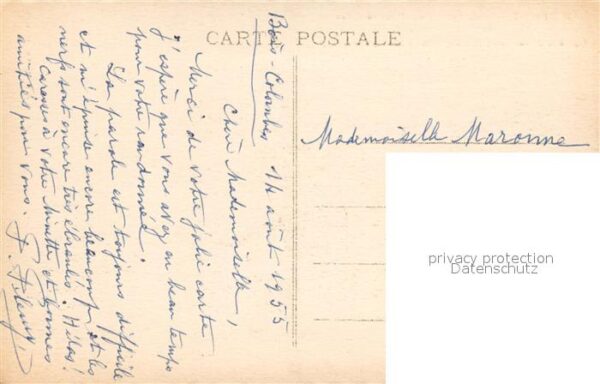 CARTE POSTALE
Bois-Colombes 14 août 1955
Chère Mademoiselle,
Merci de votre jolie carte.
J'espère que vous avez eu beau temps
pour votre randonnée.
La parole est toujours difficile
et m'épuise encore beaucoup et les
nerfs sont encore très ébranlés. Hélas!
Caresses à votre Minette et bonnes
amitiés pour vous.
Mademoiselle Maronne
privacy protection
Datenschutz